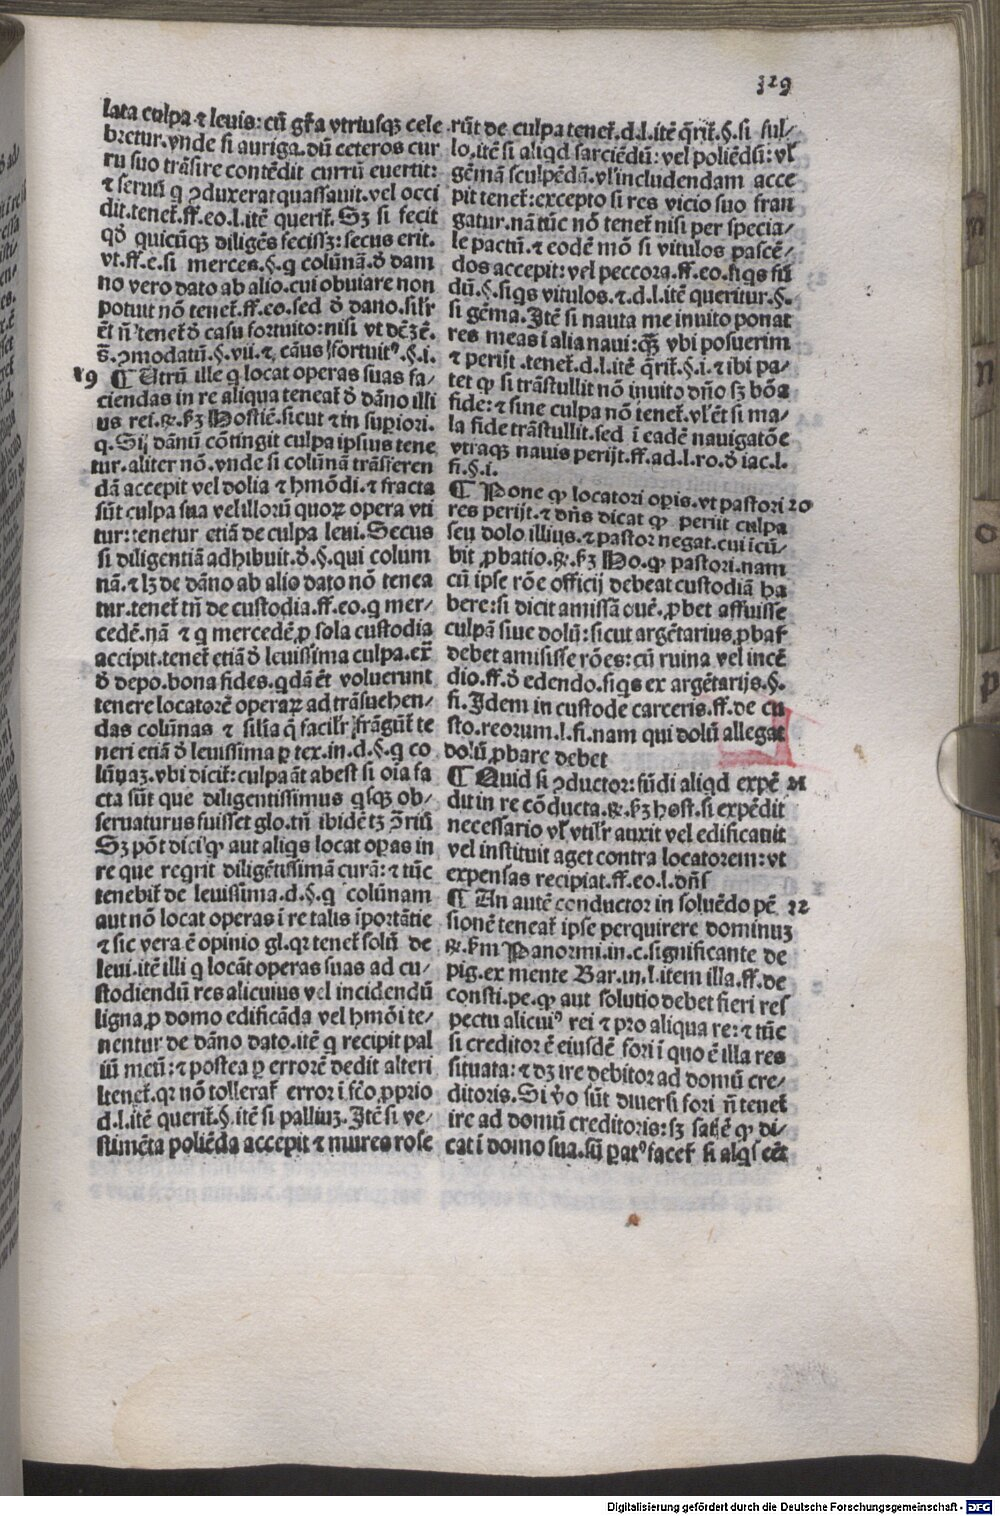 329
lata culpa ⁊ leuis: cū gr̃a vtriusqꝫ cele
bretur.vnde si auriga.dū ceteros cur
ru suo trāsire contēdit currū euertit:
⁊ seruū q ꝯduxerat quassauit.vel occi
dit.tenet̃.ff.eo.l.itē querit̃. Sꝫ si fecit
qđ quicūqꝫ diligēs fecissꝫ: secus erit.
vt.ff.e.si merces.§.q colūnā.đ dam
no vero dato ab alio.cui obuiare non
potuit nō tenet̃.ff.eo.sed đ dāno.silr̃
ēt ñ tenet̃ đ casu fortuito:nisi vt dēꝫē.
s̄.ꝯmodatū.§.vii.⁊.cāus fortuitꝰ.§.i.
19 ¶ Utrū ille q locat operas suas fa/
ciendas in re aliqua teneat̃ đ dāno illi
us rei.℟.ẜꝫ Hostiē.sicut ⁊ in supiori.
q. Si dānū cōtingit culpa ipsius tene
tur.aliter nō.vnde si colūnā trāsferen
dā accepit vel dolia ⁊ hmōdi.⁊ fracta
sūt culpa sua vel illorū quoꝝ opera vti
tur:tenetur etiā de culpa leui. Secus
si diligentiā adhibuit.đ.§.qui colum
nā.⁊ lꝫ de dāno ab alio dato nō tenea
tur.tenet̃ tñ de custodia.ff.eo.q mer/
cedē.nā ⁊ q mercedē ꝓ sola custodia
accipit.tenet̃ etiā đ leuissima culpa.ex̃
đ depo.bona fides.qdā ēt voluerunt
tenere locatorē operaꝝ ad trāsuehen/
das colūnas ⁊ silia q̄ facilr̃ frāgūt̃ te
neri etiā đ leuissima ꝑ tex.in.d.§.q co
lūnaꝫ.vbi dicit̃: culpa āt abest si oīa fa
cta sūt que diligentissimus qsqꝫ ob/
seruaturus fuisset glo.tñ ibidē tꝫ ꝯ̄riū
Sꝫ pōt dici ꝙ aut aliqs locat opas in
re que reqrit diligētissimā curā: ⁊ tūc
tenebit̃ de leuissima.d.§.q colūnam
aut nō locat operas ī re talis īportātie
⁊ sic vera ē opinio gl.qꝛ tenet̃ solū de
leui.itē illi q locāt operas suas ad cu/
stodiendū res alicuius vel incidendū
ligna ꝓ domo edificāda vel hmōi te/
nentur de dāno dato.itē q recipit pal
iū meū: ⁊ postea ꝑ errorē dedit alteri
ltenet̃.qꝛ nō tollerat̃ error ī fc̄o ꝓprio
d.l.itē querit̃.§.itē si palliuꝫ. Itē si ve/
stimēta poliēda accepit ⁊ mures rose
rūt de culpa tenet̃.d.l.itē q̄rit̃.§.si ful/
lo.itē si aliqd sarciēdū: vel poliēdū: vl̃
gēmā sculpēdā.vl̃ includendam acce
pit tenet̃:excepto si res vicio suo fran
gatur.nā tūc nō tenet̃ nisi per specia/
le pactū.⁊ eodē mō si vitulos pascē/
dos accepit: vel peccora.ff.eo.siqs fū
dū.§.siqs vitulos.⁊.d.l.itē queritur.§.
si gēma. Itē si nauta me inuito ponat
res meas ī alia naui: qꝫ vbi posuerim
⁊ perijt.tenet̃.d.l.itē q̄rit̃.§.i.⁊ ibi pa/
tet ꝙ si trāstullit nō inuito dño sꝫ bōa
fide: ⁊ sine culpa nō tenet̃.vl̃ ēt si ma/
la fide trāstullit.sed ī eadē nauigatōe
vtraqꝫ nauis perijt.ff.ad.l.ro.đ iac.l.
fi.§.i.
¶ Pone ꝙ locatori opis.vt pastori 20
res perijt.⁊ dñs dicat ꝙ periit culpa
seu dolo illius.⁊ pastor negat.cui īcū/
bit ꝓbatio.℟.ẜꝫ Ho.ꝙ pastori.nam
cū ipse rōe officij debeat custodiā ha
bere: si dicit amissā ouē.ꝓbet affuisse
culpā siue dolū: sicut argētarius ꝓbar̃
debet amisisse rōes: cū ruina vel incē
dio.ff.đ edendo.siqs ex argētarijs.§.
fi. Idem in custode carceris.ff.de cu
sto.reorum.l.fi.nam qui dolū allegat
dolū ꝓbare debet
¶ Quid si ꝯductor: fūdi aliqd expē 21
dit in re cōducta.℟.ẜꝫ host.si expēdit
necessario vl̃ vtilr̃ auxit vel edificauit
vel instituit aget contra locatorem: vt
expensas recipiat.ff.eo.l.dñs
¶ An autē conductor in soluēdo pē 22
sionē teneat̃ ipse perquirere dominuꝫ
℟.ẜm Panormi.in.c.significante de
pig.ex mente Bar.in.l.item illa.ff.de
consti.pe.ꝙ aut solutio debet fieri res
pectu alicuiꝰ rei ⁊ pro aliqua re: ⁊ tūc
si creditor ē eiusdē fori ī quo ē illa res
situata: ⁊ dꝫ ire debitor ad domū cre/
ditoris. Si ꝟo sūt diuersi fori ñ tenet̃
ire ad domū creditoris: sꝫ satꝭ ē ꝙ di/
cat ī domo sua.sū paratꝰ facer̃ si alqs eēt
Digitalisierung gefördert durch die Deutsche Forschungsgemeinschaft - DFG